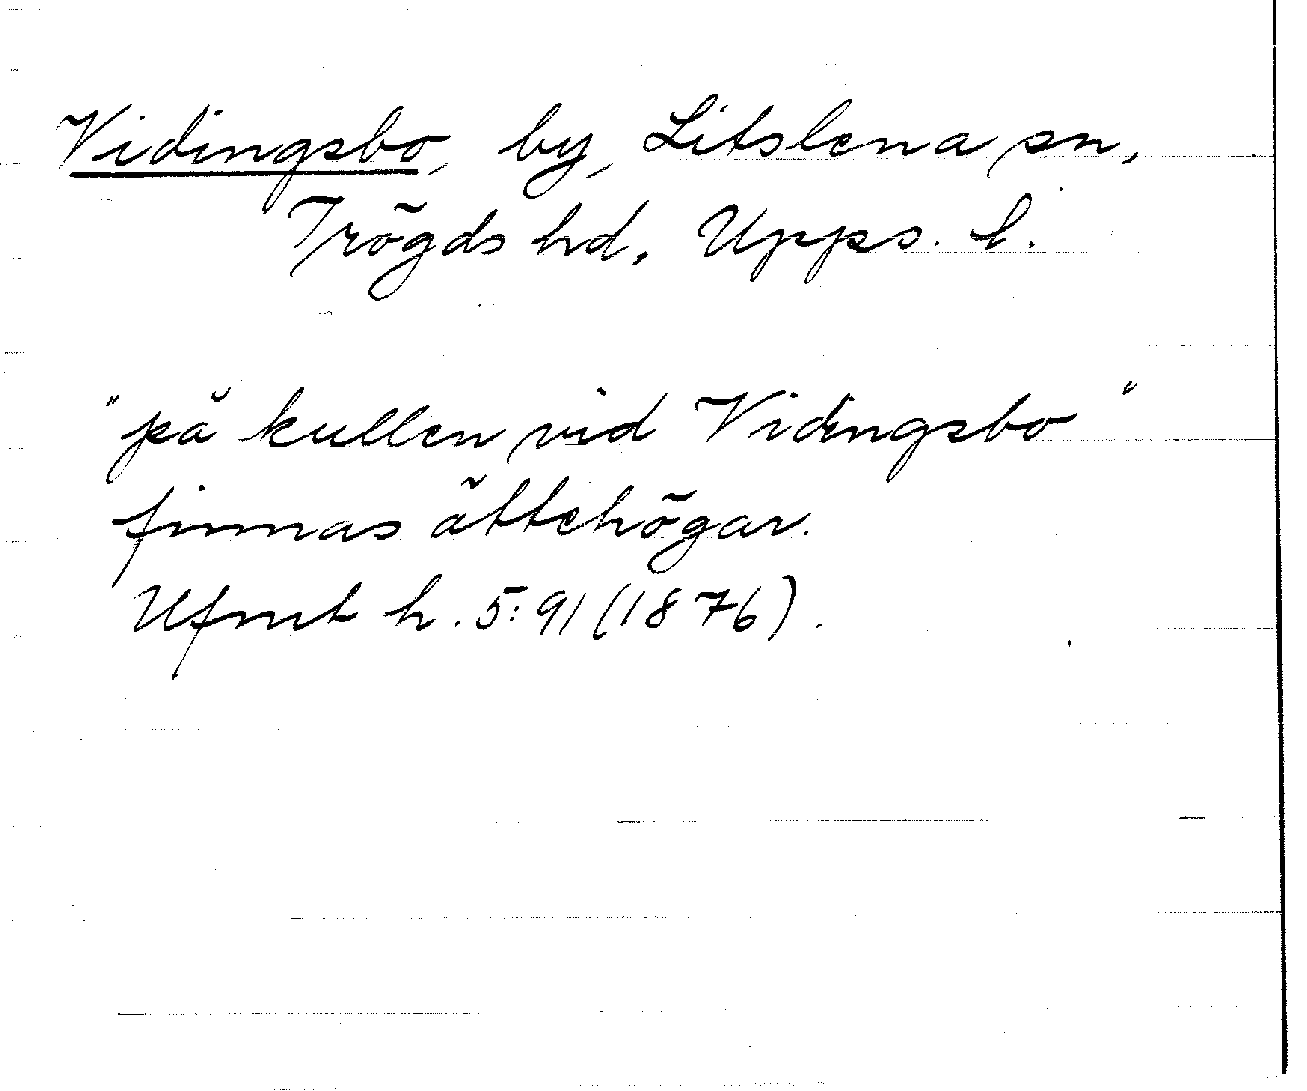 Vidingsbo, by, Litslena sn,
Trögds hd, Upps. l.
"på kullen vid Vidingsbo"
finnas ättehögar.
Ufmt h. 5:91 (1876).